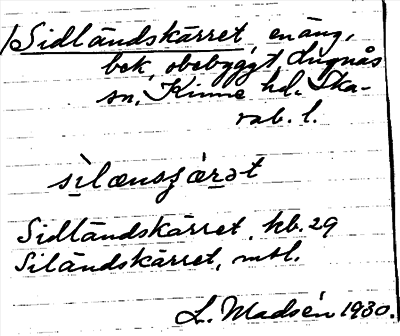 Sidländskärret, enäng,
bek, obebyggt Lugnås
sn. Kinne hd. Ska-
rab. l.
Sidländskärret, kb. 29
Siländskärret, mtl.
L. Madsén 1930.